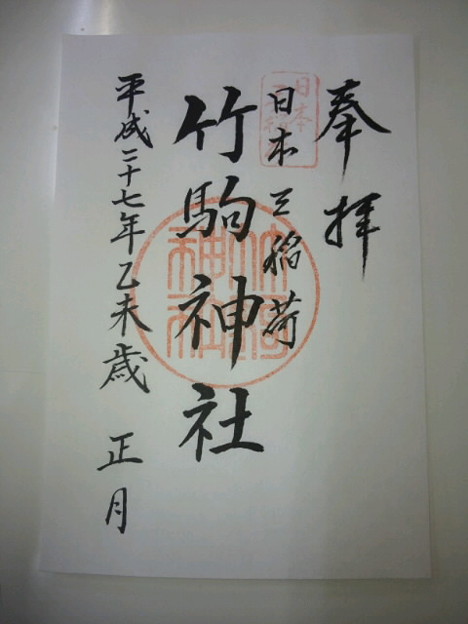 奉拝
日本三稲荷
竹駒神社
平成二十七年乙未歳 正月
日本三稲荷
竹駒神社